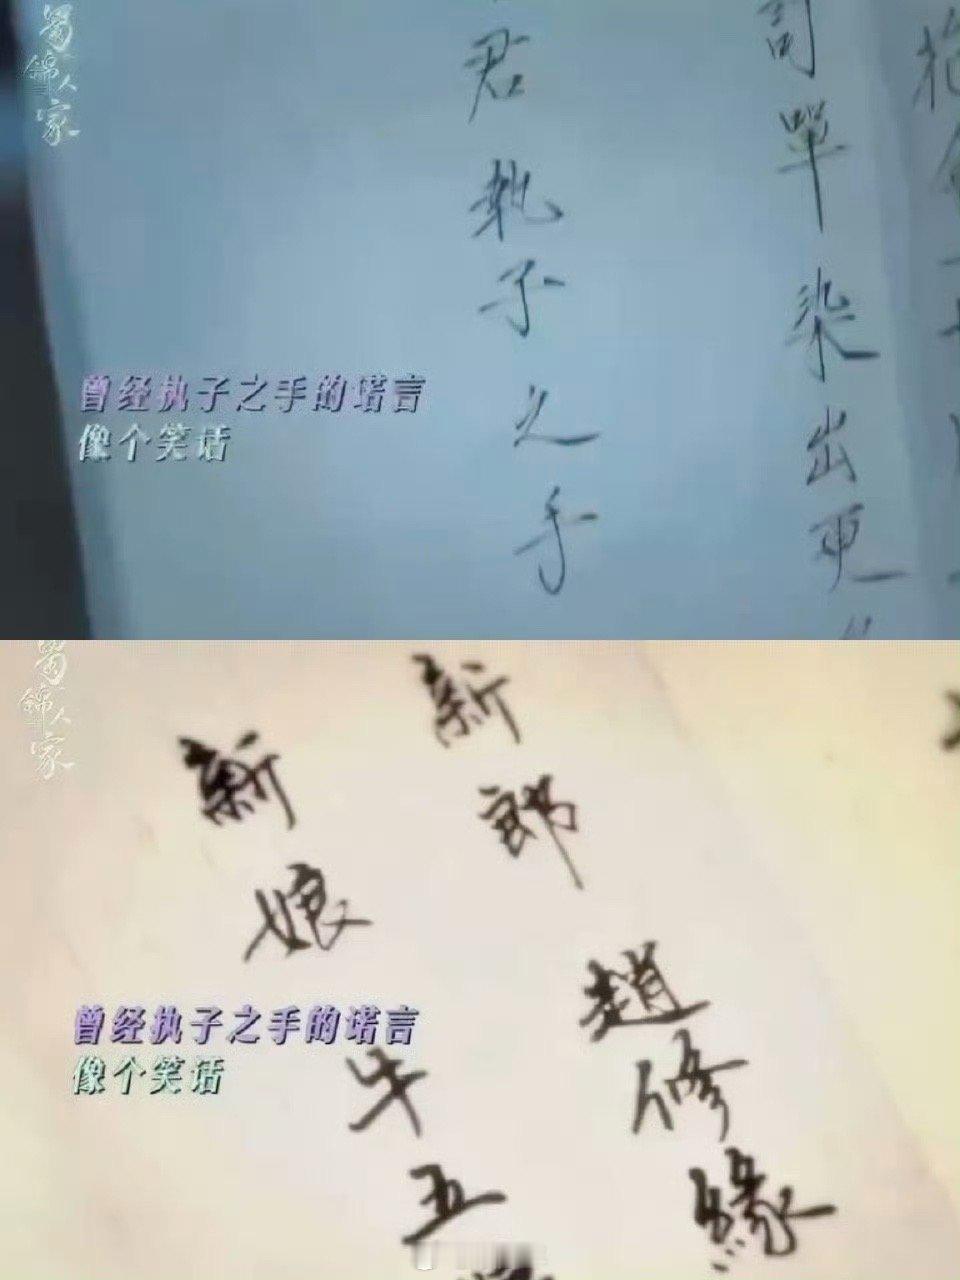 蜀锦人家
君执子之手
单染出更
曾经执子之手的诺言
像个笑话
蜀锦人家
新郎趙修緣
新娘牛五
曾经执子之手的诺言
像个笑话